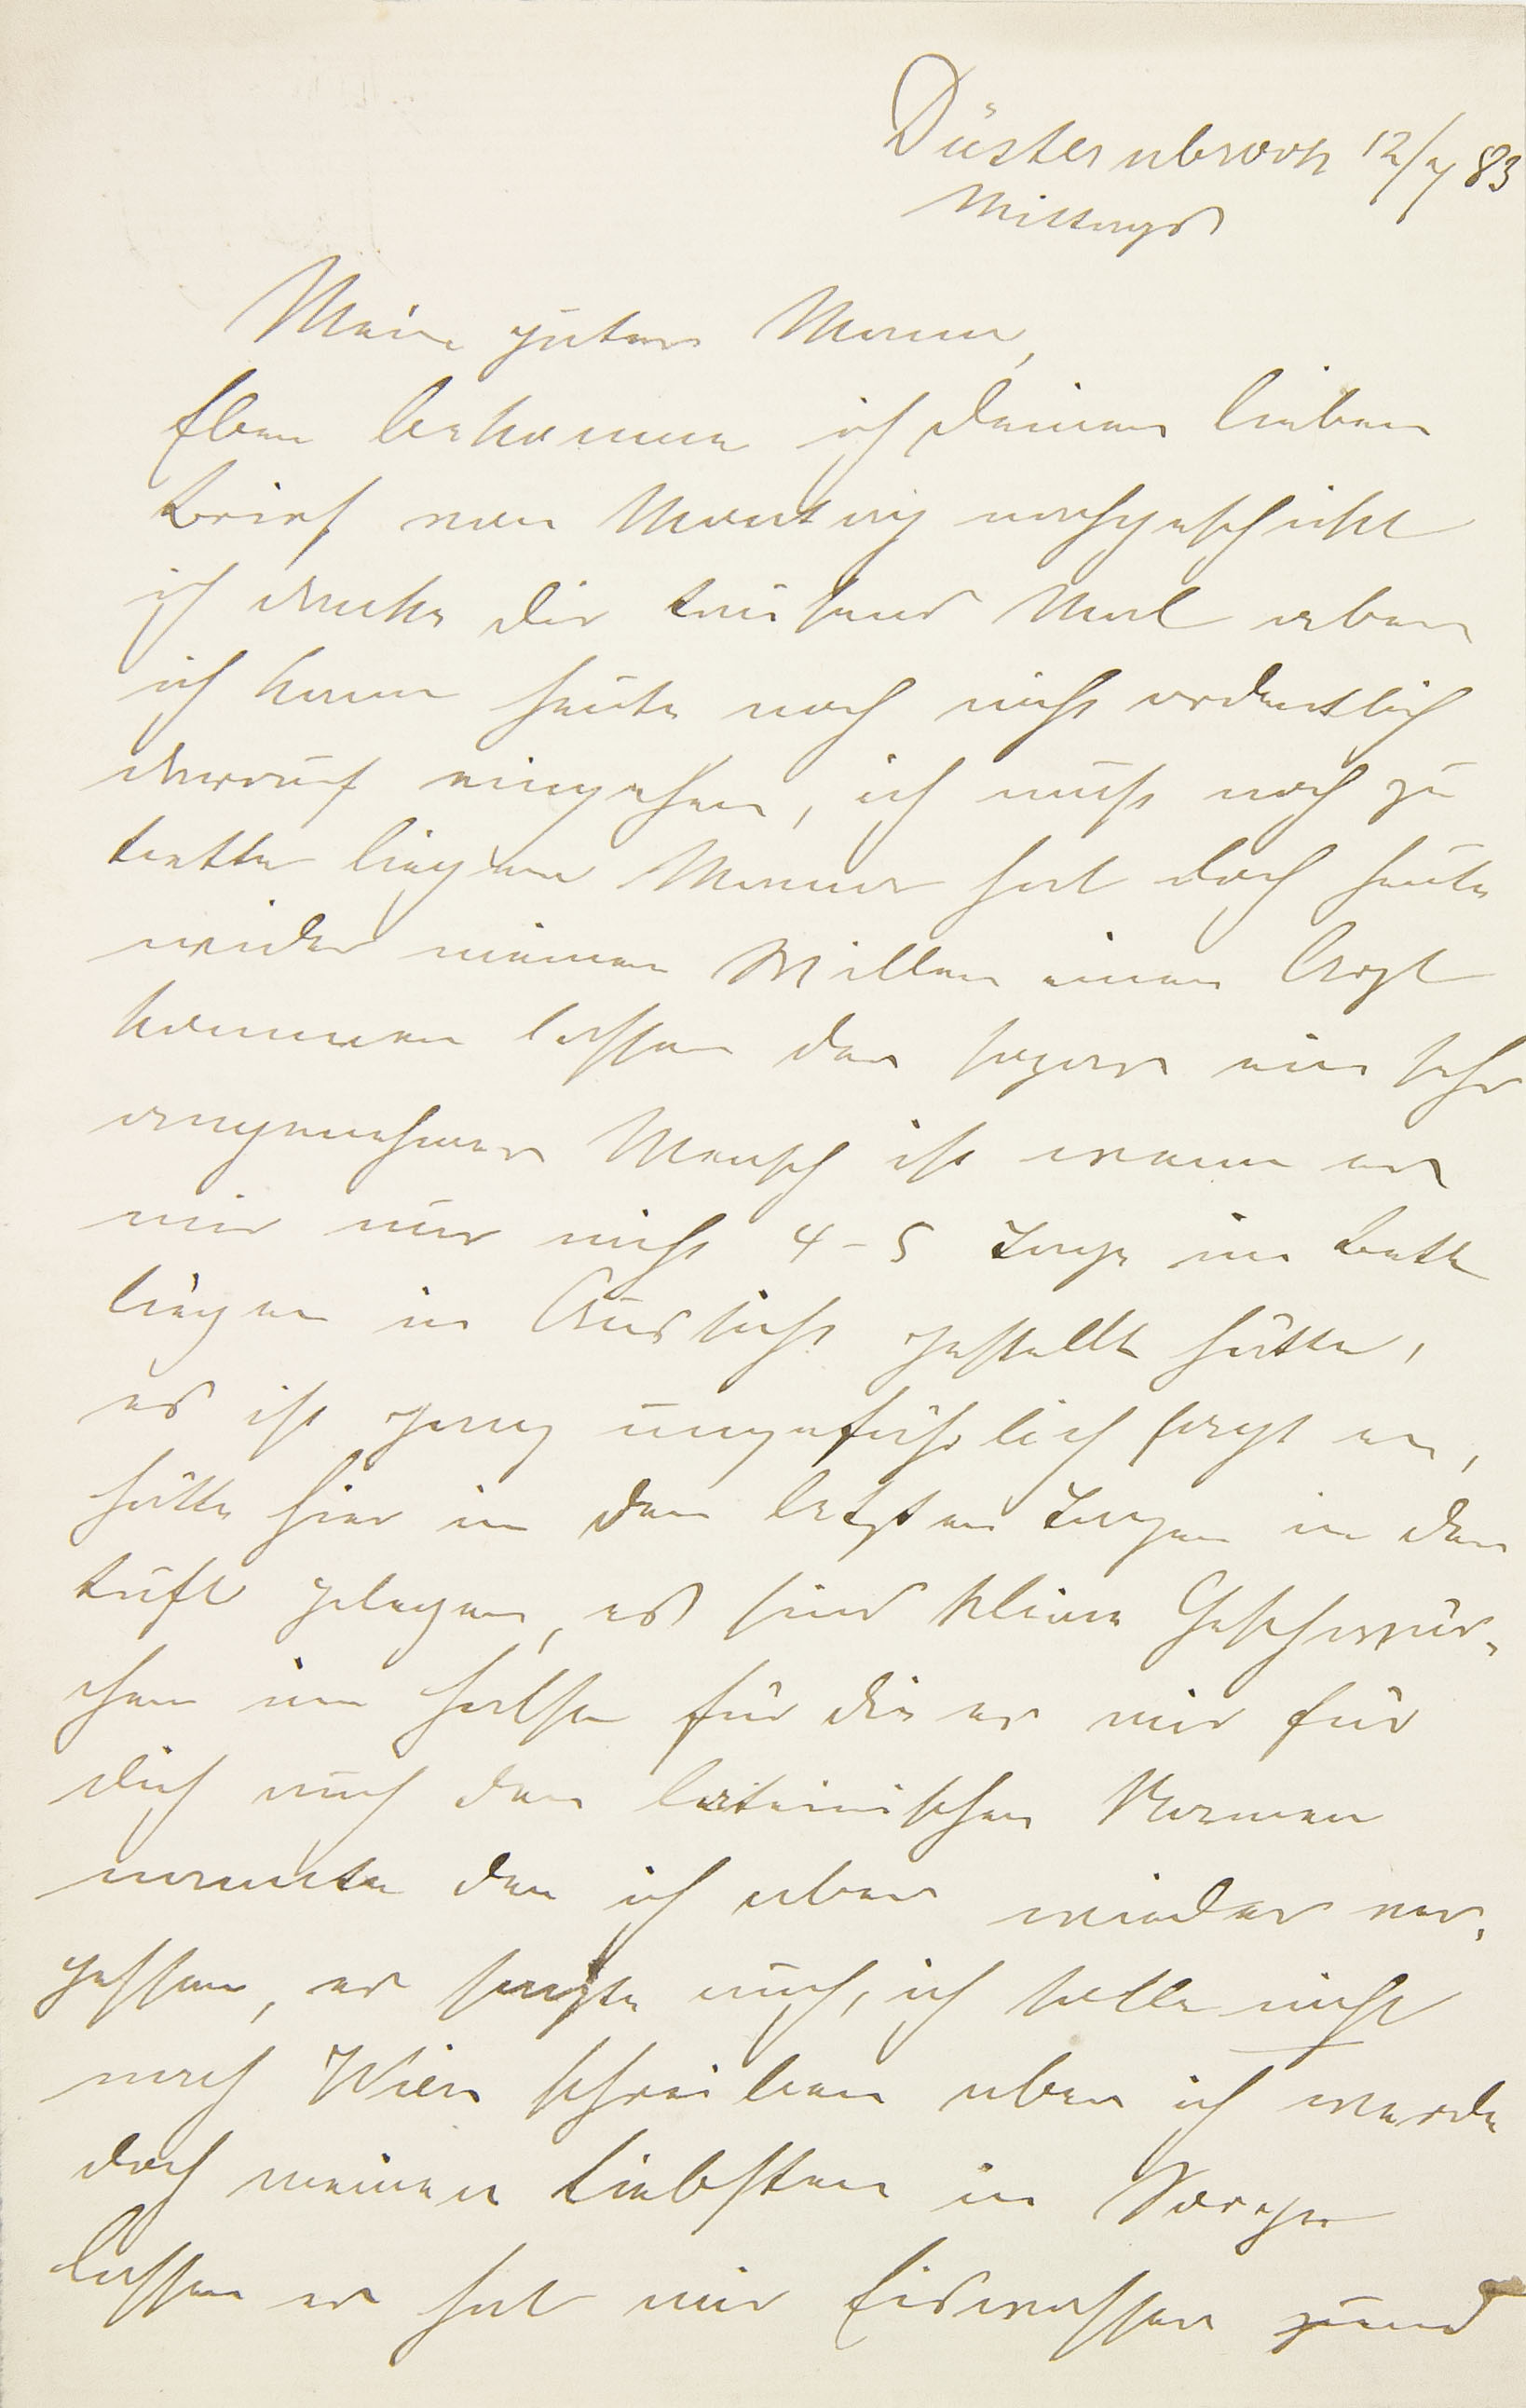 Düsternbrook 12/7 83
Mittags
Mein guter Mann,
Eben bekomme ich deinen lieben
Brief von Montag nachgeschickt
ich danke dir tausend Mal aber
ich kann heute noch nicht ordentlich
darauf eingehen, ich muß noch zu
Bette liegen Mama hat doch heute
wider meinen Willen einen Arzt
kommen lassen der sogar ein sehr
angenehmer Mensch ist wenn er
mir nur nicht 4 - 5 Tage im Bett
liegen in Aussicht gestellt hätte,
es ist ganz ungefährlich sagt er,
hätte hier in den letzten Tagen in der
Luft gelegen, es sind kleine Geschwür-
chen im Halse für die er mir für
dich auch den lateinischen Namen
nannte den ich aber wieder ver-
gessen, er sagte auch, ich solle nicht
nach Wien schreiben aber ich werde
doch meinen Liebsten in Sorge
lassen er hat mir Eiswasser und